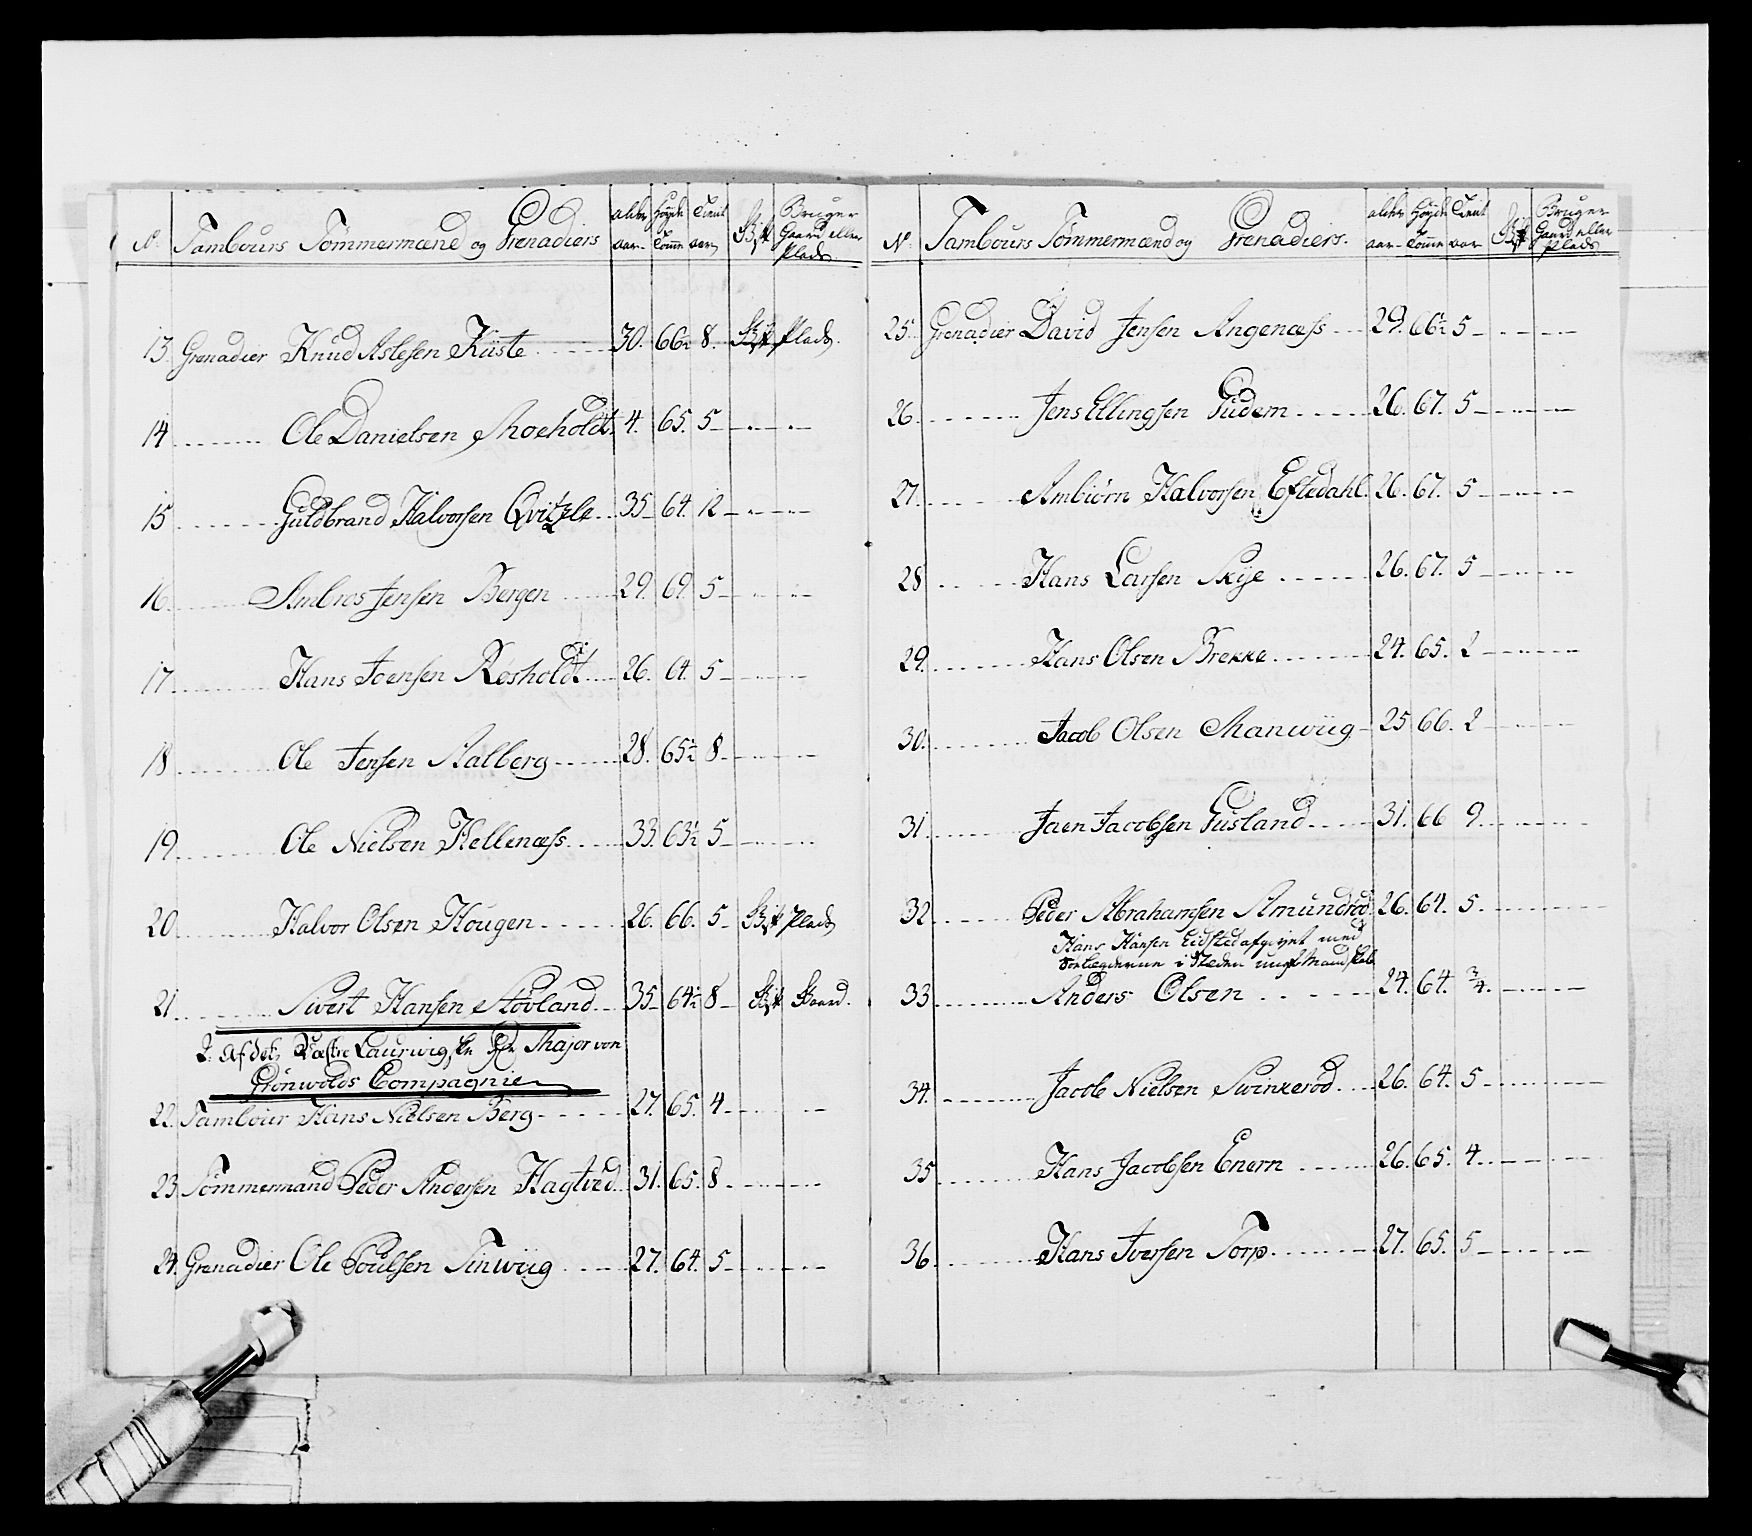 No. Tambours Tømmermænd og Grenadiers alder aar Høyde Tomme Tient aar Gift Bruger Gaard eller Plads
13. Grenadier Knud Aslesen Küste 30. 66½ 8. Gift Plads.
14 Ole Danielsen Moeholdt 4. 65. 5
15 Guldbrand Halvorsen Qvitzele 35 64. 12
16. Ambros Jensen Bergen 29. 69. 5
17. Hans Joensen Røsholdt 26. 64. 5
18 Ole Jensen Aalberg 28. 65½ 8
19. Ole Nielsen Hellenæss 33. 63½ 5
20 Halvor Olsen Hougen 26. 66. 5 Gift Plads
21. Sivert Hansen Støvland 35 64½ 8 Gift Gaard.
2. Afdel: Vestre Laurwigske Major von
Grönwolds Compagnie
22. Tambour Hans Nielsen Berg 27. 65. 4
23. Tømmermand Peder Andersen Hagtved 31. 65. 8
24. Grenadier Ole Poulsen Tinwiig 27. 64. 5
No. Tambours Tømmermænd og Grenadiers. alder aar Høyde Tomme Tient aar Gift Bruger Gaard eller Plads
25. Grenadier David Jensen Angenæss 29. 66½ 5
26. Jens Ellingsen Gudem 26. 67. 5
27. Ambiørn Halvorsen Eftedahl 26. 67. 5
28 Hans Larsen Skye 26. 67. 5
29. Hans Olsen Brekke 24. 65. 2
30. Jacob Olsen Manwiig 25 66. 2
31. Jaen Jacobsen Gusland 31. 66 9.
32. Peder Abrahamsen Amundrød 26. 64. 5.
Hans Hansen Eidsted afgivet med
i Steden Mandskab
33. Anders Olsen 24. 64. ¾.
34. Jacob Nielsen Svinkerød 26. 64. 5
35 Hans Jacobsen Enern 26. 65. 4
36. Hans Iversen Torp 27. 65. 5